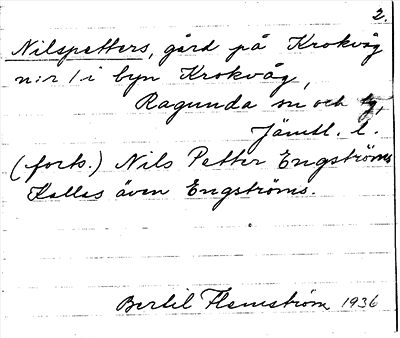 2.
Nilspetters, gård på Krokvåg
n:r 1 i byn Krokvåg,
Ragunda sn och
Jämtl. l.
(forts.) Nils Petter Engströms
Kallas även Engströms.
Bertil Flemström 1936